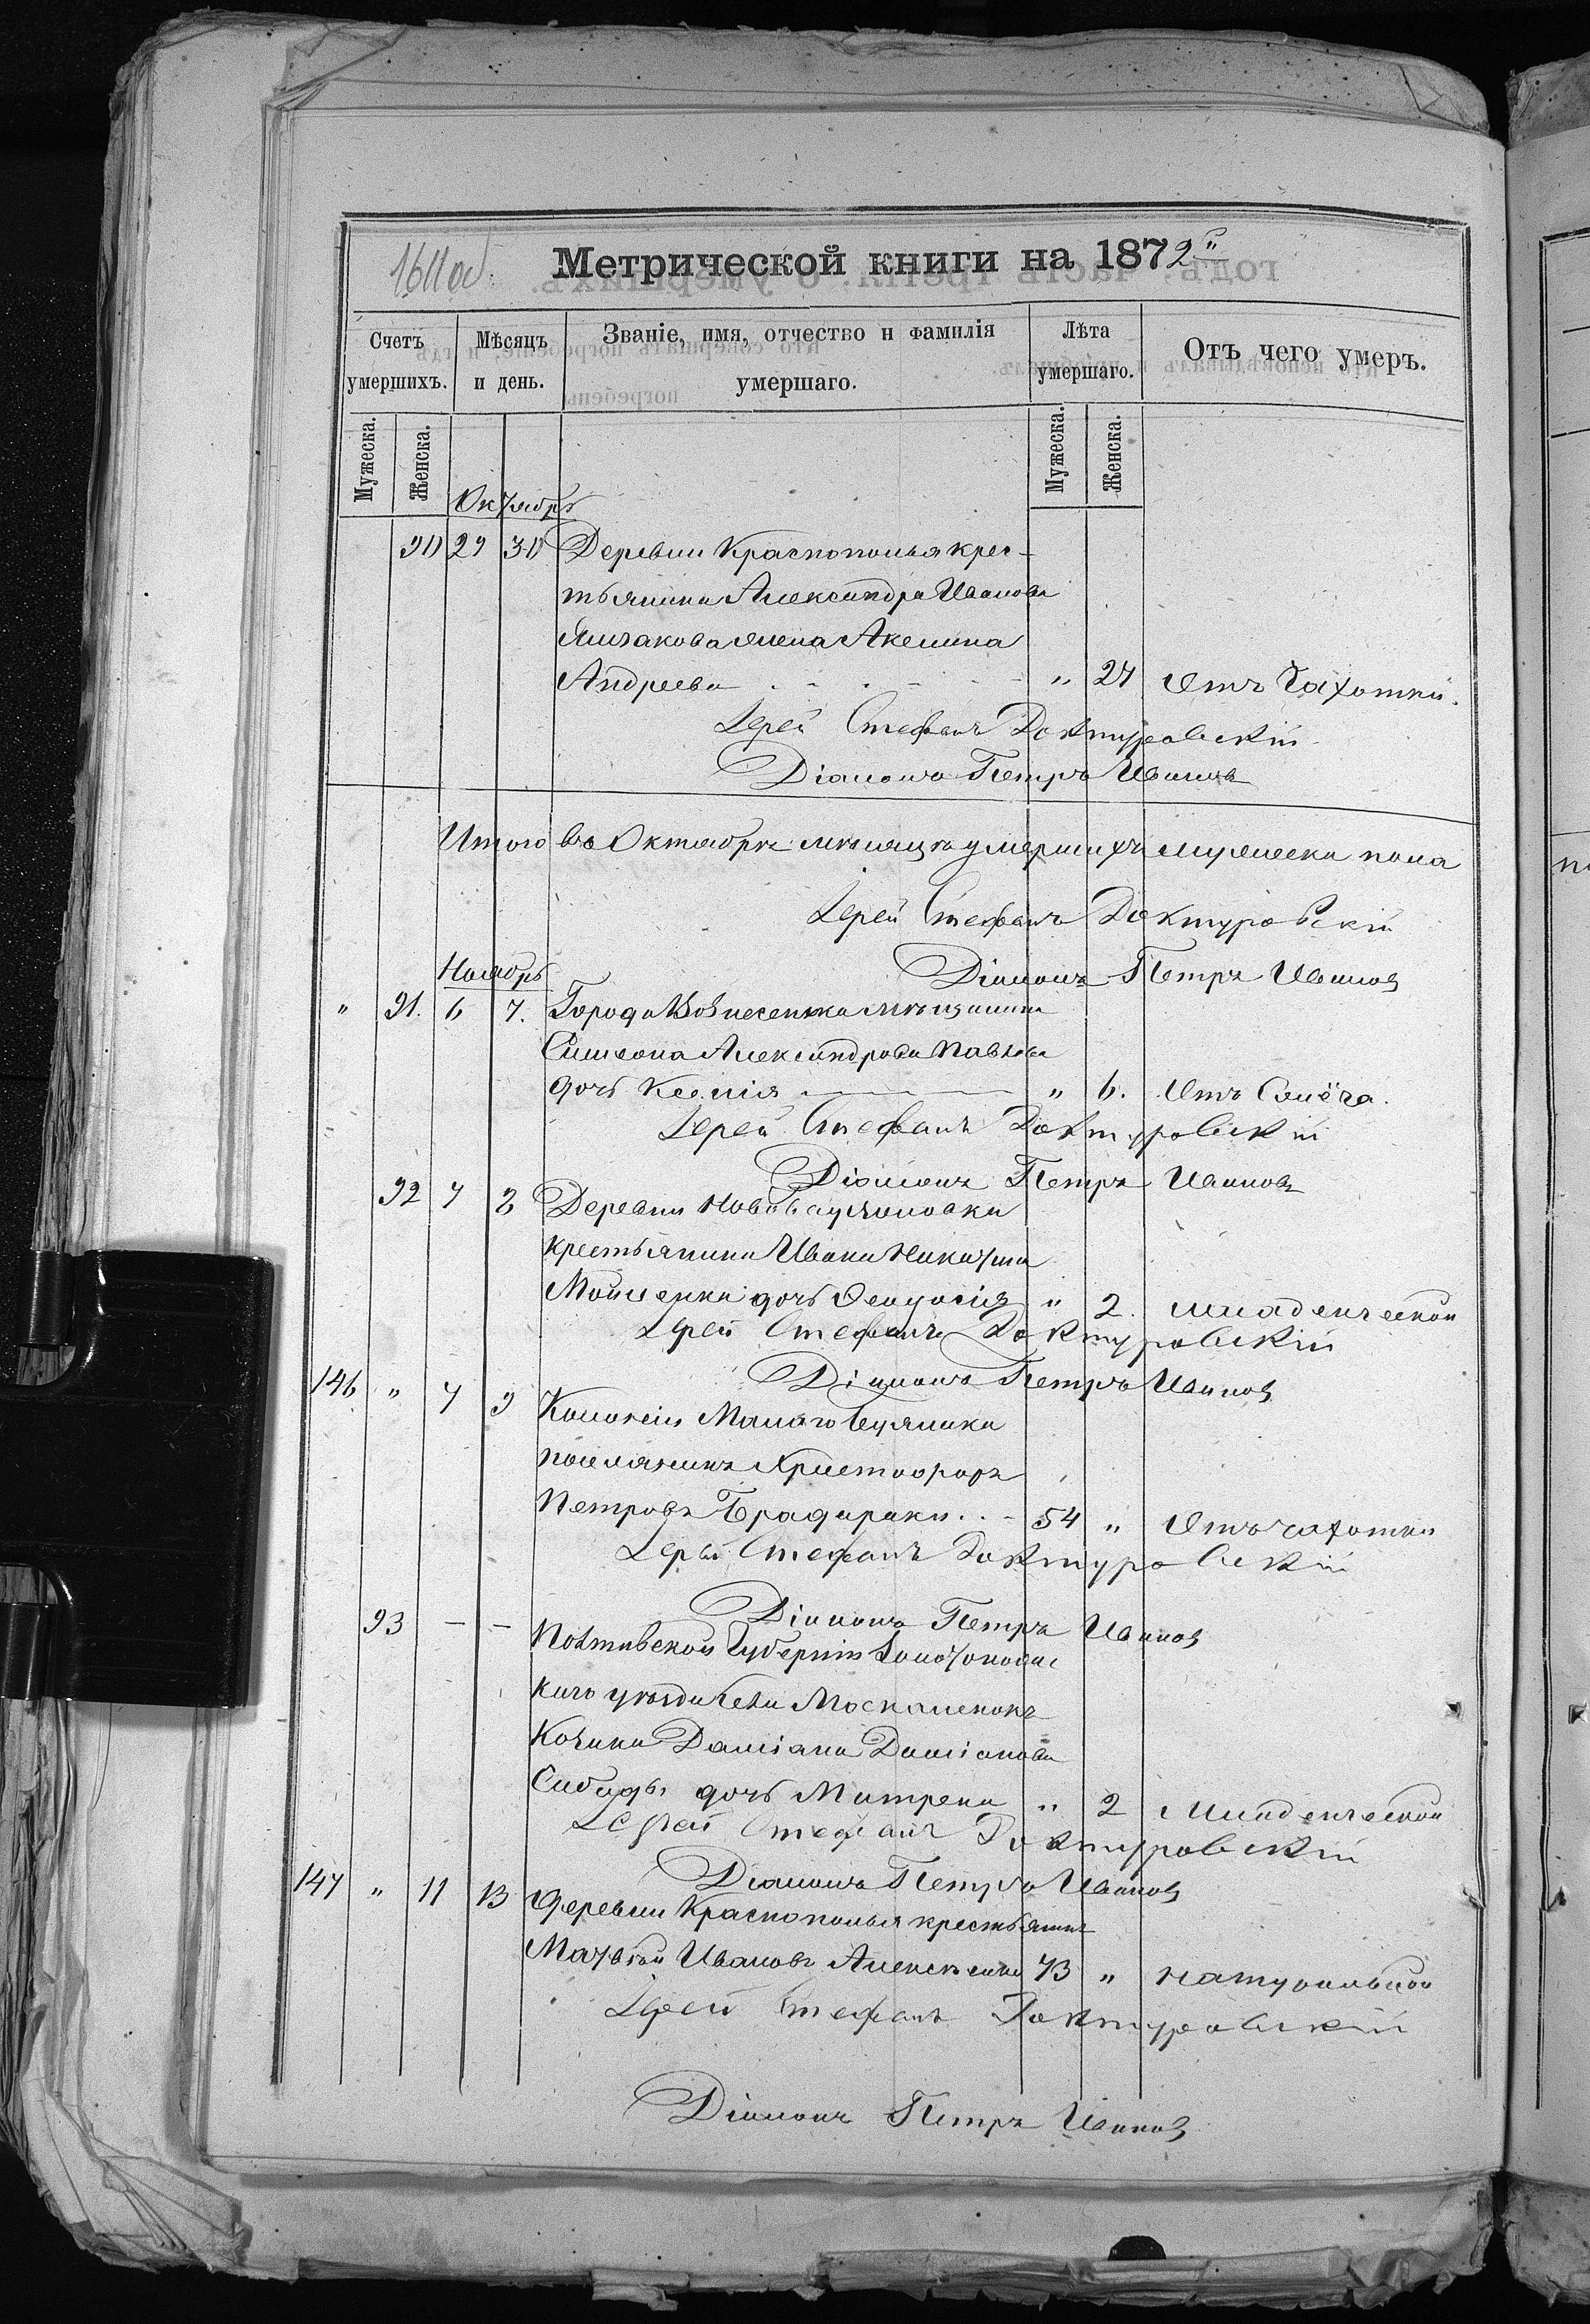 161 об.
Метрической книги на 1872й
Счетъ умершихъ.
Мѣсяцъ и день.
Званіе, имя, отчество и фамилія умершаго.
Лѣта умершаго.
Отъ чего умеръ.
Мужеска.
Женска.
Мужеска.
Женска.
Октябрь
90 29 30 Деревни Краснополья крес-
тьянина Александра Иванова
жена Акелина
Андреева " 24 Отъ Чахотки.
Іерей Стефанъ Доктуровскій
Діаконъ Петръ Ивановъ
Итого въ Октябрѣ мѣсяцѣ умершихъ мужеска пола
Іерей Стефанъ Доктуровскій
Діаконъ Петръ Ивановъ
Ноябрь
" 91. 6 7. Города Вознесенска мѣщанина
Симеона Александрова Павлова
дочь Ксенія " 6.
Іерей Стефанъ Доктуровскій
Діаконъ Петръ Ивановъ
92 7 8 Деревни
крестьянина Ивана Никитина
дочь Феодосія " 2. младенческой
Іерей Стефанъ Доктуровскій
Діаконъ Петръ Ивановъ
146 " 7 9 Колоніи Малаго Буялыка
поселянинъ Христофоръ
Петровъ 54 " Отъ чахотки
Іерей Стефанъ Доктуровскій
Діаконъ Петръ Ивановъ
93 - - Полтавской Губерніи Золотоношс
каго уѣзда села Москаленокъ
козака Даміана Даміанова
дочь Матрена " 2 Младенческой
Іерей Стефанъ Доктуровскій
Діаконъ Петръ Ивановъ
147 " 11 13 Деревни Краснополья крестьянинъ
Матвѣй Ивановъ Алексѣенко 73 " натуральной
Іерей Стефанъ Доктуровскій
Діаконъ Петръ Ивановъ